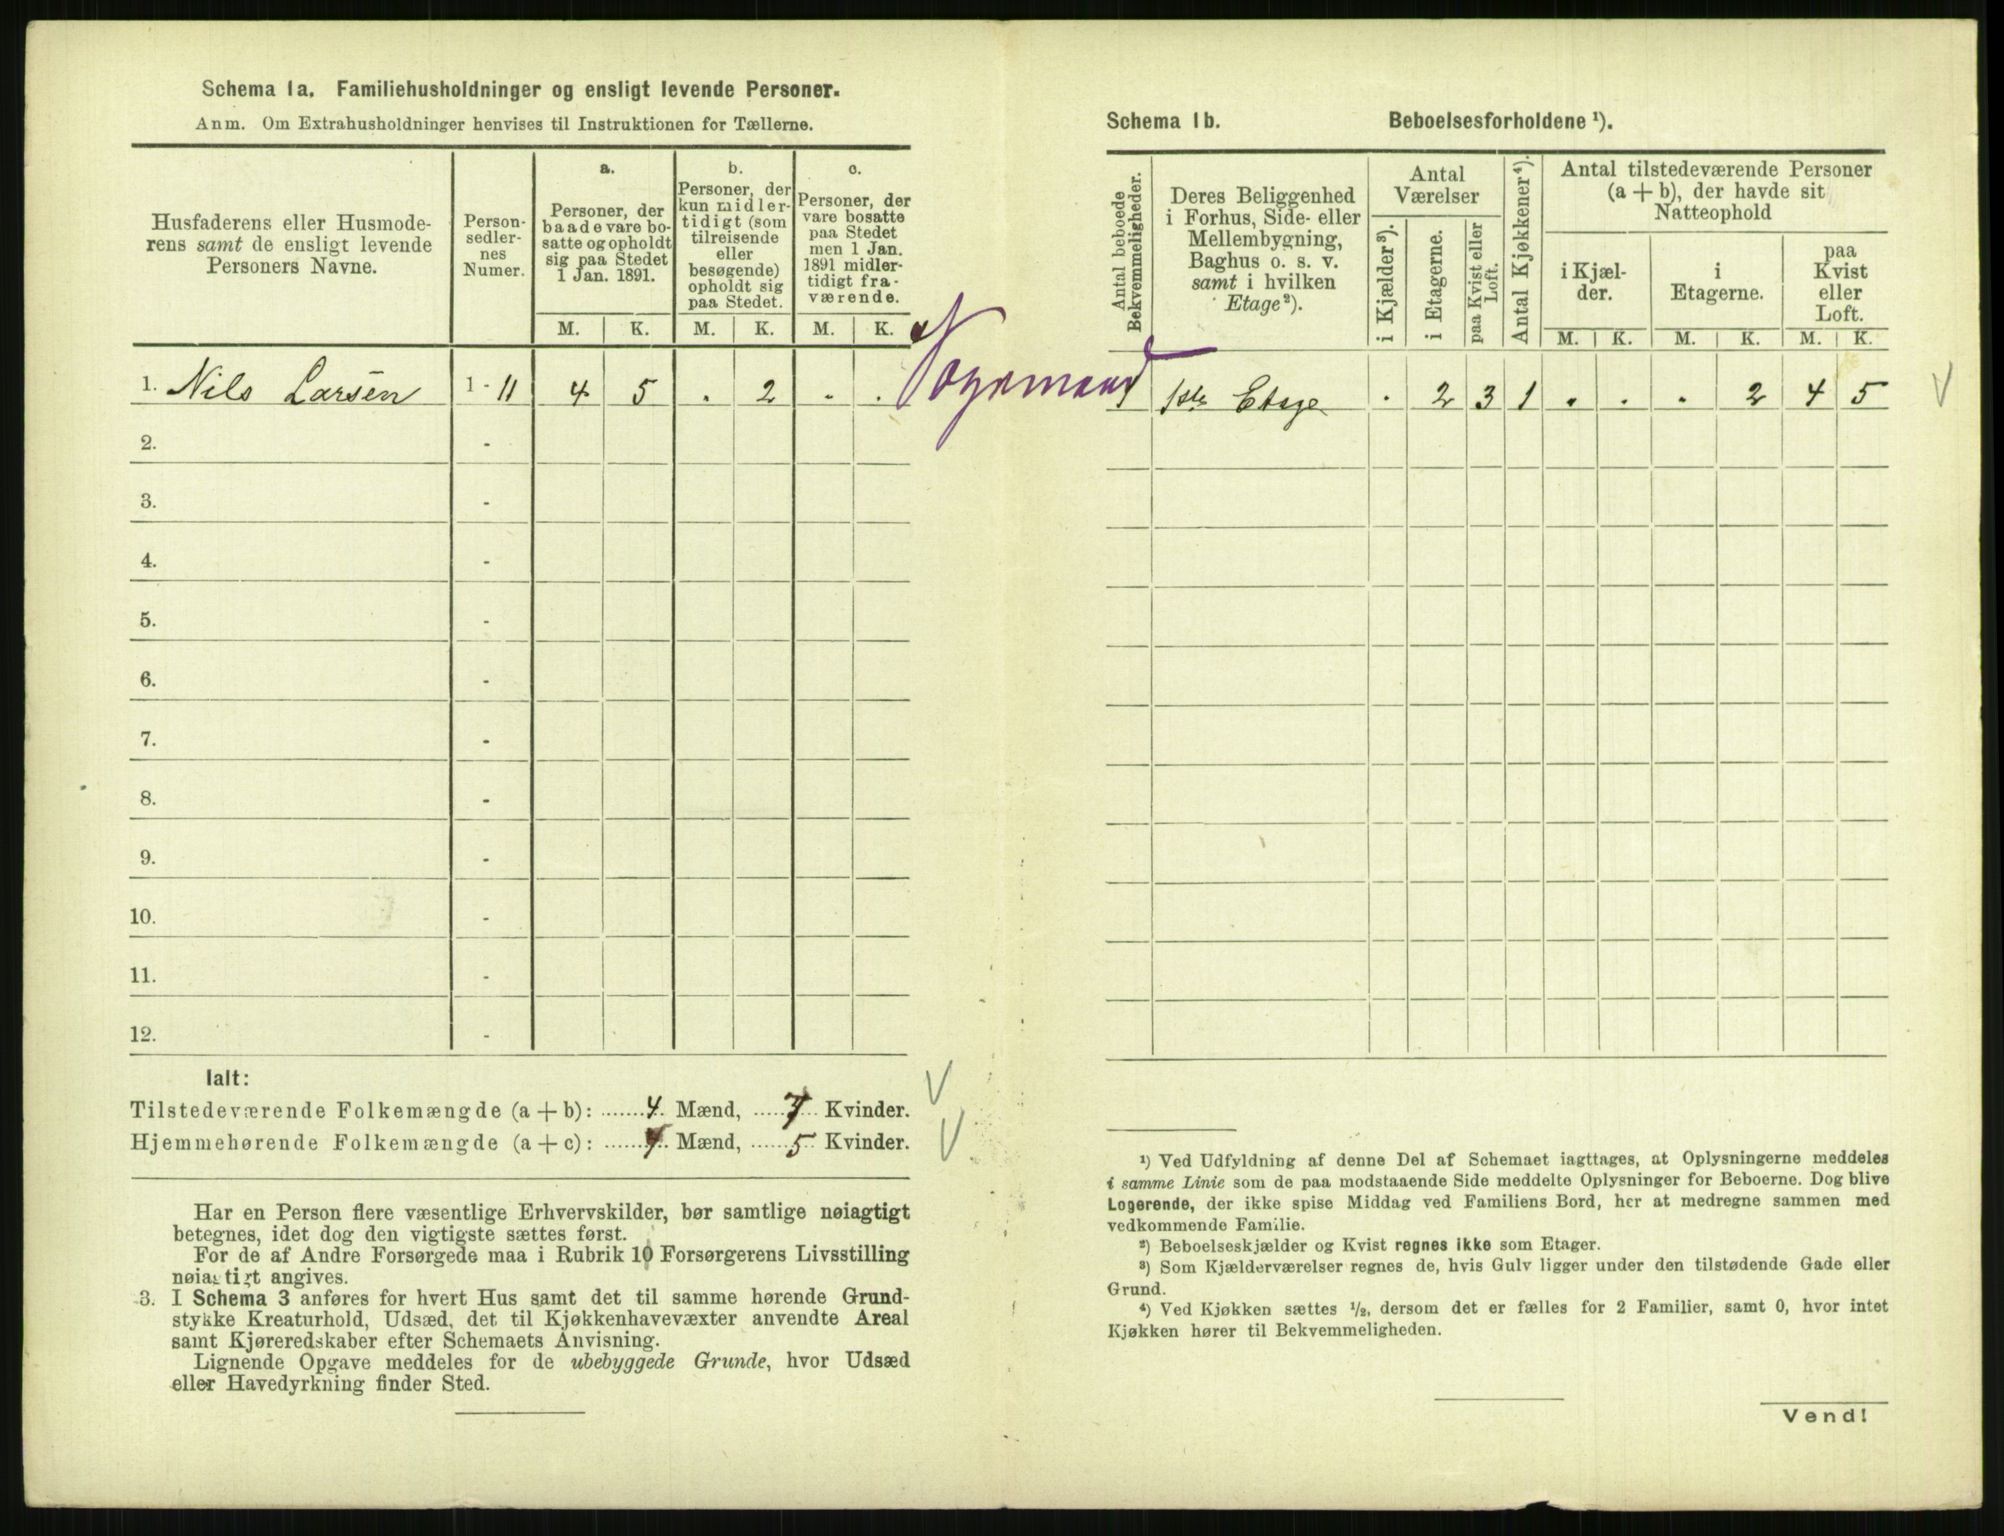 Schema 1a. Familiehusholdninger og ensligt levende Personer.
Anm. Om Extrahusholdninger henvises til Instruktionen for Tællerne.
Husfaderens eller Husmode-
rens samt de ensligt levende
Personers Navne.
Person-
sedler-
nes
Numer.
a.
Personer, der
baade vare bo-
satte og opholdt
sig paa Stedet
1 Jan. 1891.
b.
Personer, der
kun midler-
tidigt (som
tilreisende
eller
besøgende)
opholdt sig
paa Stedet.
c.
Personer, der
vare bosatte
paa Stedet
men 1 Jan.
1891 midler-
tidigt fra-
værende.
M. K. M. K. M. K.
1. Nils Larsen 1 - 11 4 5 . 2 . .
2. -
3. -
4. -
5. -
6. -
7. -
8. -
9. -
10. -
11. -
12. -
Ialt:
Tilstedeværende Folkemængde (a + b): ....... 4 Mænd, ..... 7 Kvinder.
Hjemmehørende Folkemængde (a + c): ....... 4 Mænd, ...... 5 Kvinder.
Har en Person flere væsentlige Erhvervskilder, bør samtlige nøiagtigt
betegnes, idet dog den vigtigste sættes først.
For de af Andre Forsørgede maa i Rubrik 10 Forsørgerens Livsstilling
nøiagtigt angives.
3. I Schema 3 anføres for hvert Hus samt det til samme hørende Grund-
stykke Kreaturhold, Udsæd, det til Kjøkkenhavevæxter anvendte Areal
samt Kjøreredskaber efter Schemaets Anvisning.
Lignende Opgave meddeles for de ubebyggede Grunde, hvor Udsæd
eller Havedyrkning finder Sted.
Schema 1b. Beboelsesforholdene ¹).
Antal beboede
Bekvemmeligheder.
Deres Beliggenhed
i Forhus, Side- eller
Mellembygning,
Baghus o. s. v.
samt i hvilken
Etage²).
Antal
Værelser
i Kjælder³).
i Etagerne.
paa Kvist eller
Loft.
Antal Kjøkkener⁴).
Antal tilstedeværende Personer
(a + b), der havde sit
Natteophold
i Kjæl-
der.
i
Etagerne.
paa
Kvist
eller
Loft.
M. K. M. K. M. K.
1 1ste Etage . 2 3 1 . . . 2 4 5
¹) Ved Udfyldning af denne Del af Schemaet iagttages, at Oplysningerne meddeles
i samme Linie som de paa modstaaende Side meddelte Oplysninger for Beboerne. Dog blive
Logerende, der ikke spise Middag ved Familiens Bord, her at medregne sammen med
vedkommende Familie.
²) Beboelseskjælder og Kvist regnes ikke som Etager.
³) Som Kjælderværelser regnes de, hvis Gulv ligger under den tilstødende Gade eller
Grund.
⁴) Ved Kjøkken sættes ½, dersom det er fælles for 2 Familier, samt 0, hvor intet
Kjøkken hører til Bekvemmeligheden.
Vend!